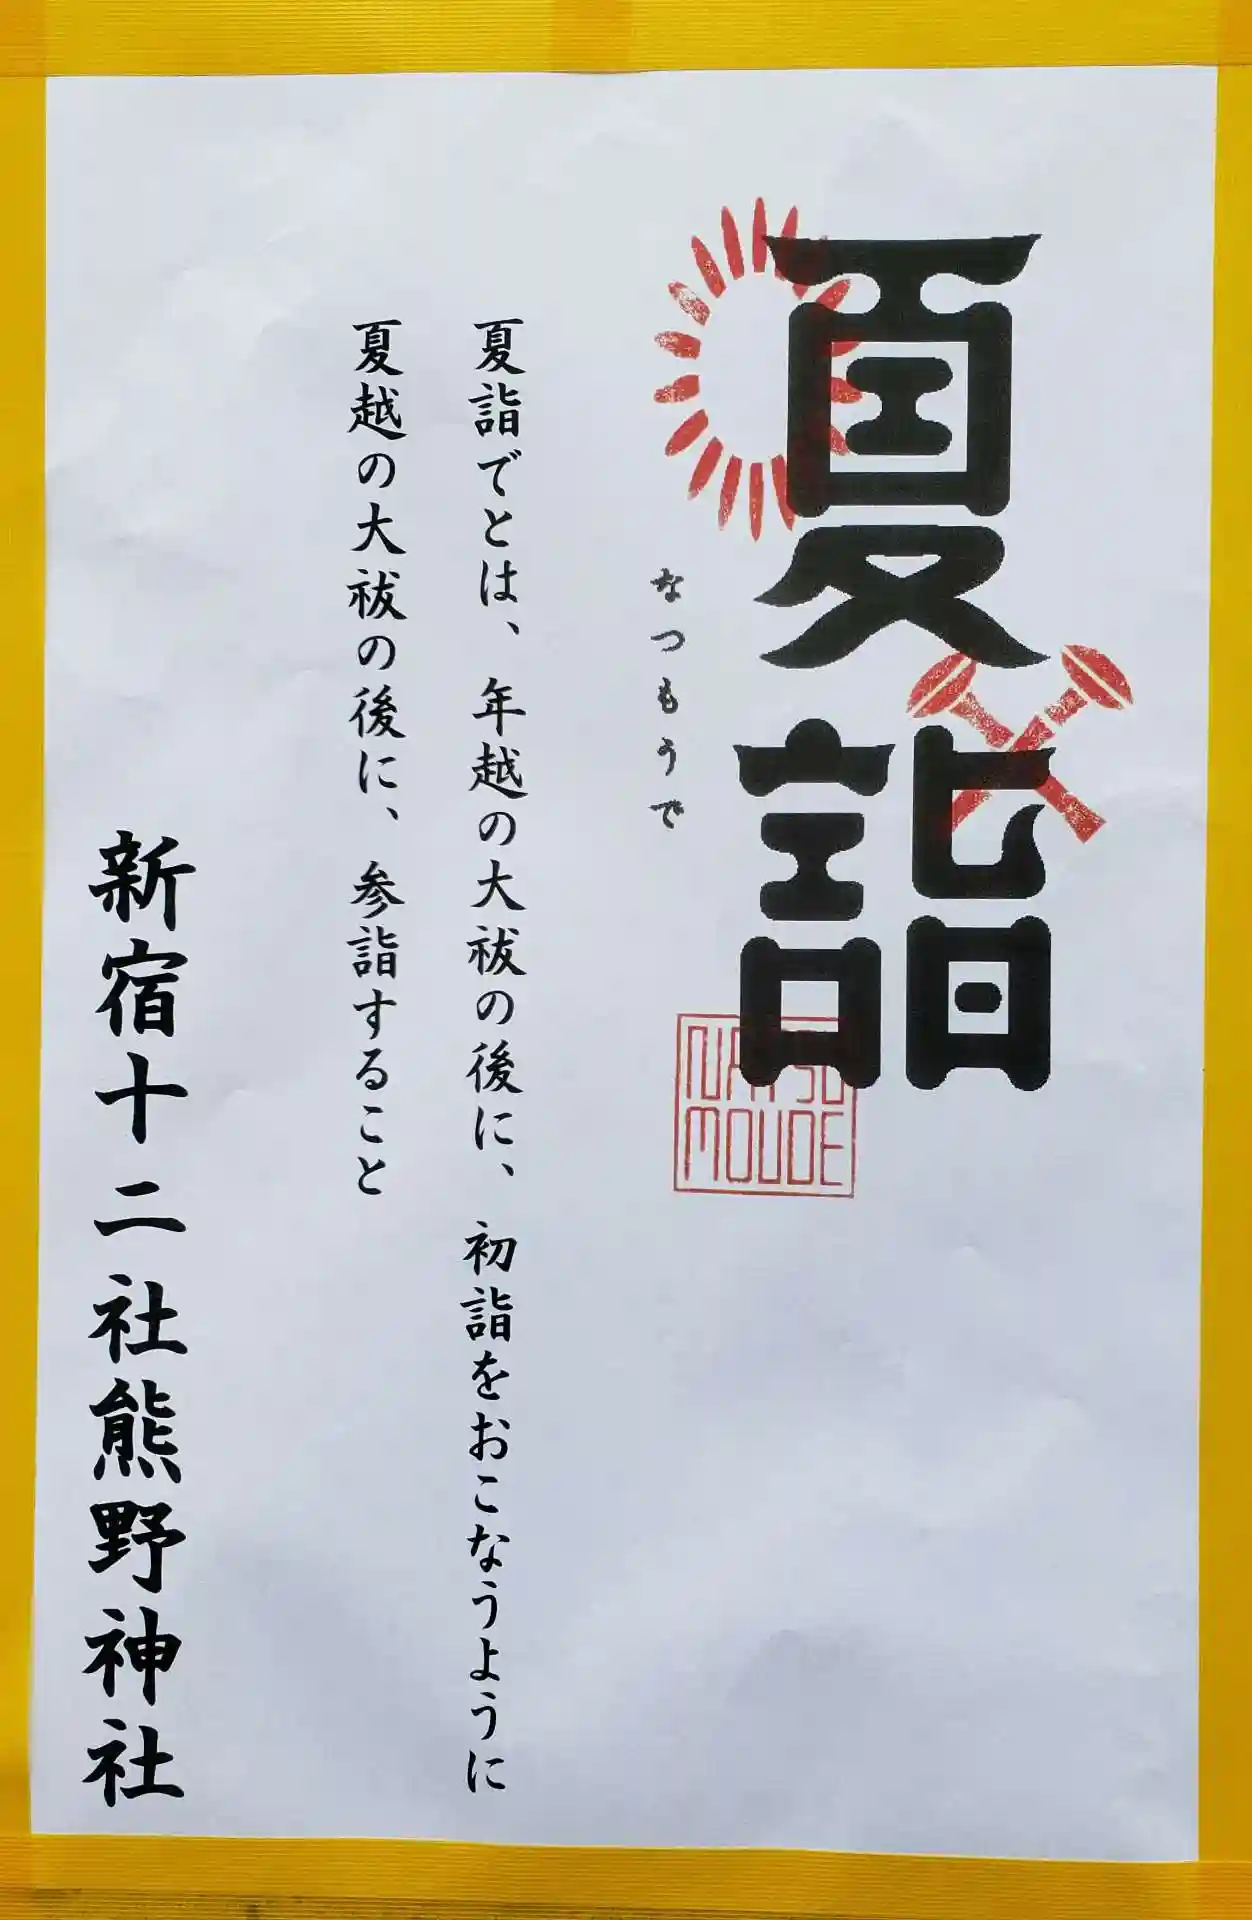 夏詣
なつもうで
NATSU
MOUDE
夏詣でとは、年越の大祓の後に、初詣をおこなうように
夏越の大祓の後に、参詣すること
新宿十二社熊野神社